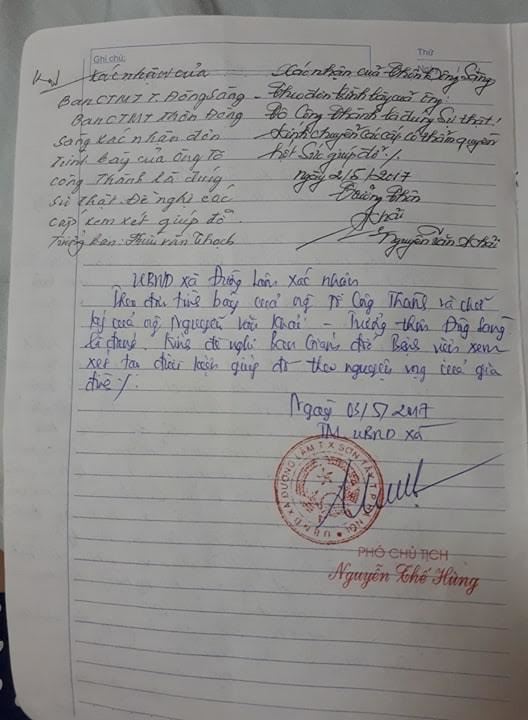 Ghi chú:
Thứ
Ngày
Xác nhận của
Ban CTMT T. Đông Sàng
Ban CTMT Thôn Đông
Sàng xác nhận đơn
Trình bày của ông Tô
Công Thành là đúng
sự thật. Đề nghị các
cấp xem xét giúp đỡ.
Trưởng ban:
Xác nhận của thôn Đông Sàng
Theo đơn trình bày của ông
Tô Công Thành là đúng sự thật!
Kính chuyển các cấp có thẩm quyền
hết sức giúp đỡ ./.
ngày 2/5/2017
Trưởng thôn
Khải
Nguyễn Văn Khải
UBND xã Đường Lâm xác nhận
Theo đơn trình bày của ông Tô Công Thành và chữ
ký của ông Nguyễn Văn Khải - Trưởng thôn Đông Sàng
là đúng. Kính đề nghị Ban Giám đốc Bệnh viện xem
xét tạo điều kiện giúp đỡ theo nguyện vọng của gia
đình ./.
Ngày 03/5/2017
TM UBND xã
U.B.N.D XÃ ĐƯỜNG LÂM T.X SƠN TÂY T.P HÀ NỘI
PHÓ CHỦ TỊCH
Nguyễn Thế Hùng